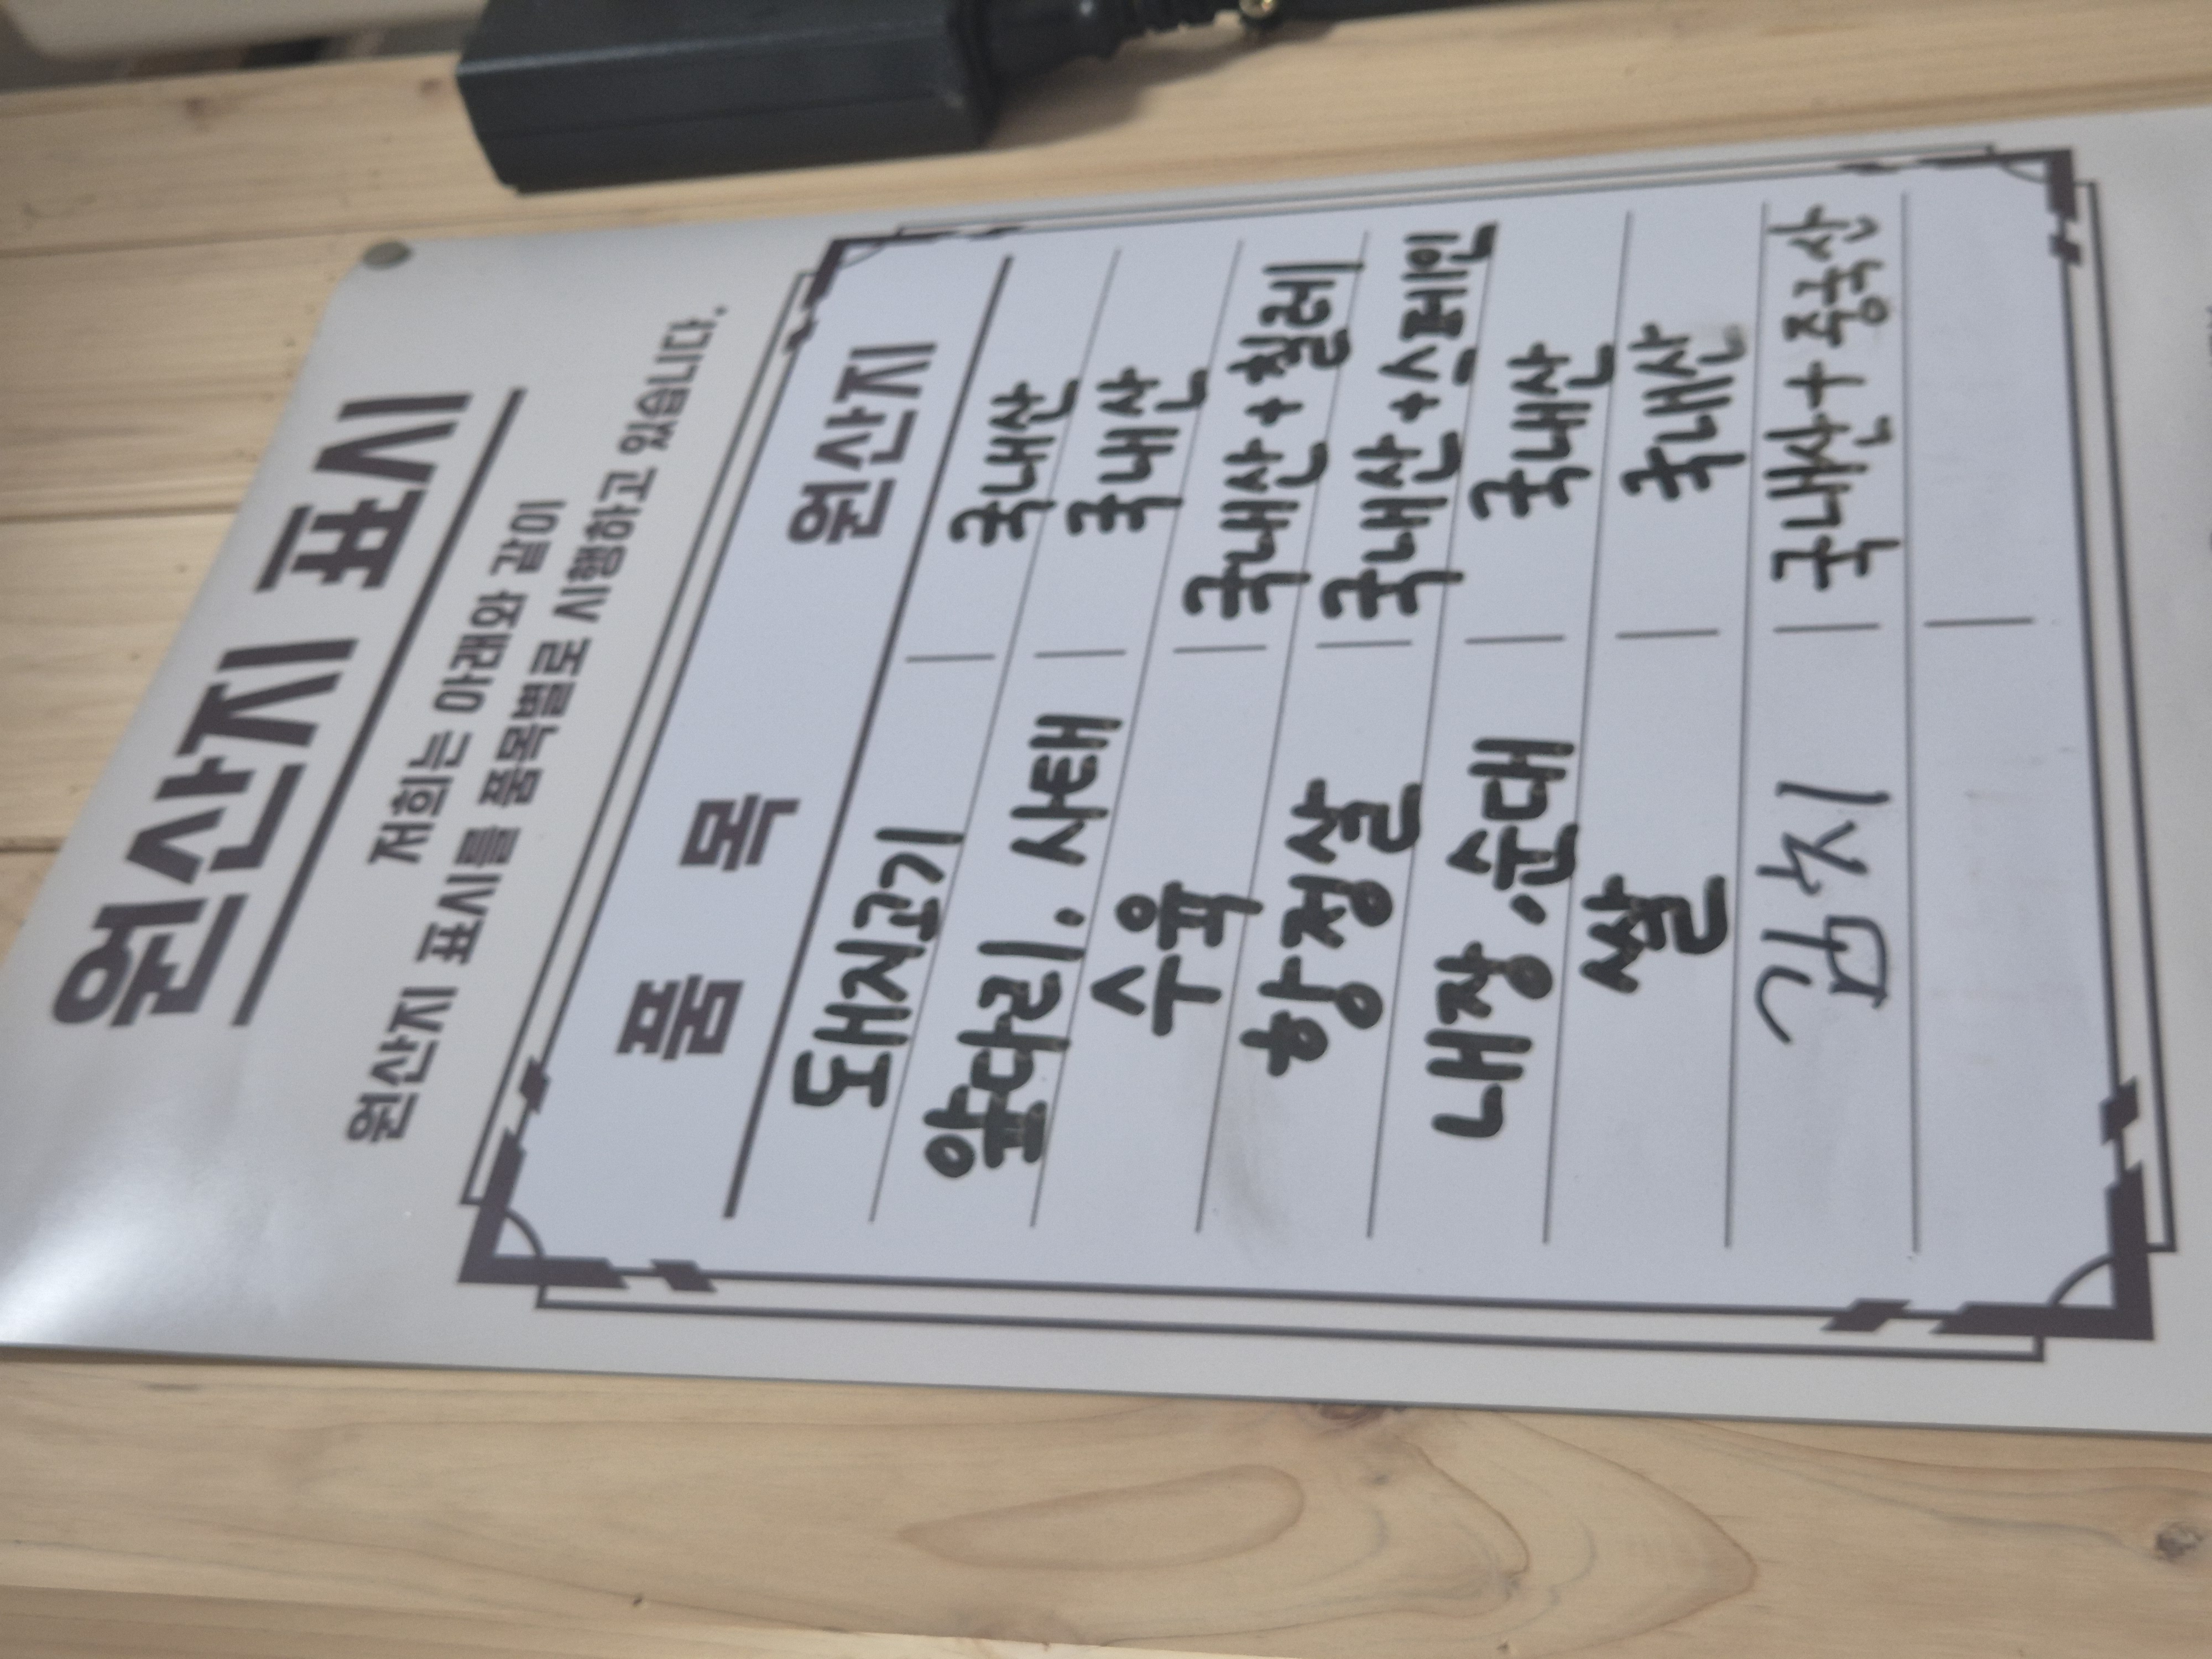 원산지 표시
저희는 아래와 같이
원산지 표시를 품목별로 시행하고 있습니다.
품 목 원산지
돼지고기 국내산
앞다리. 사태 국내산
수육 국내산 + 칠레
항정살 국내산 + 스페인
내장. 순대 국내산
쌀 국내산
김치 국내산 + 중국산